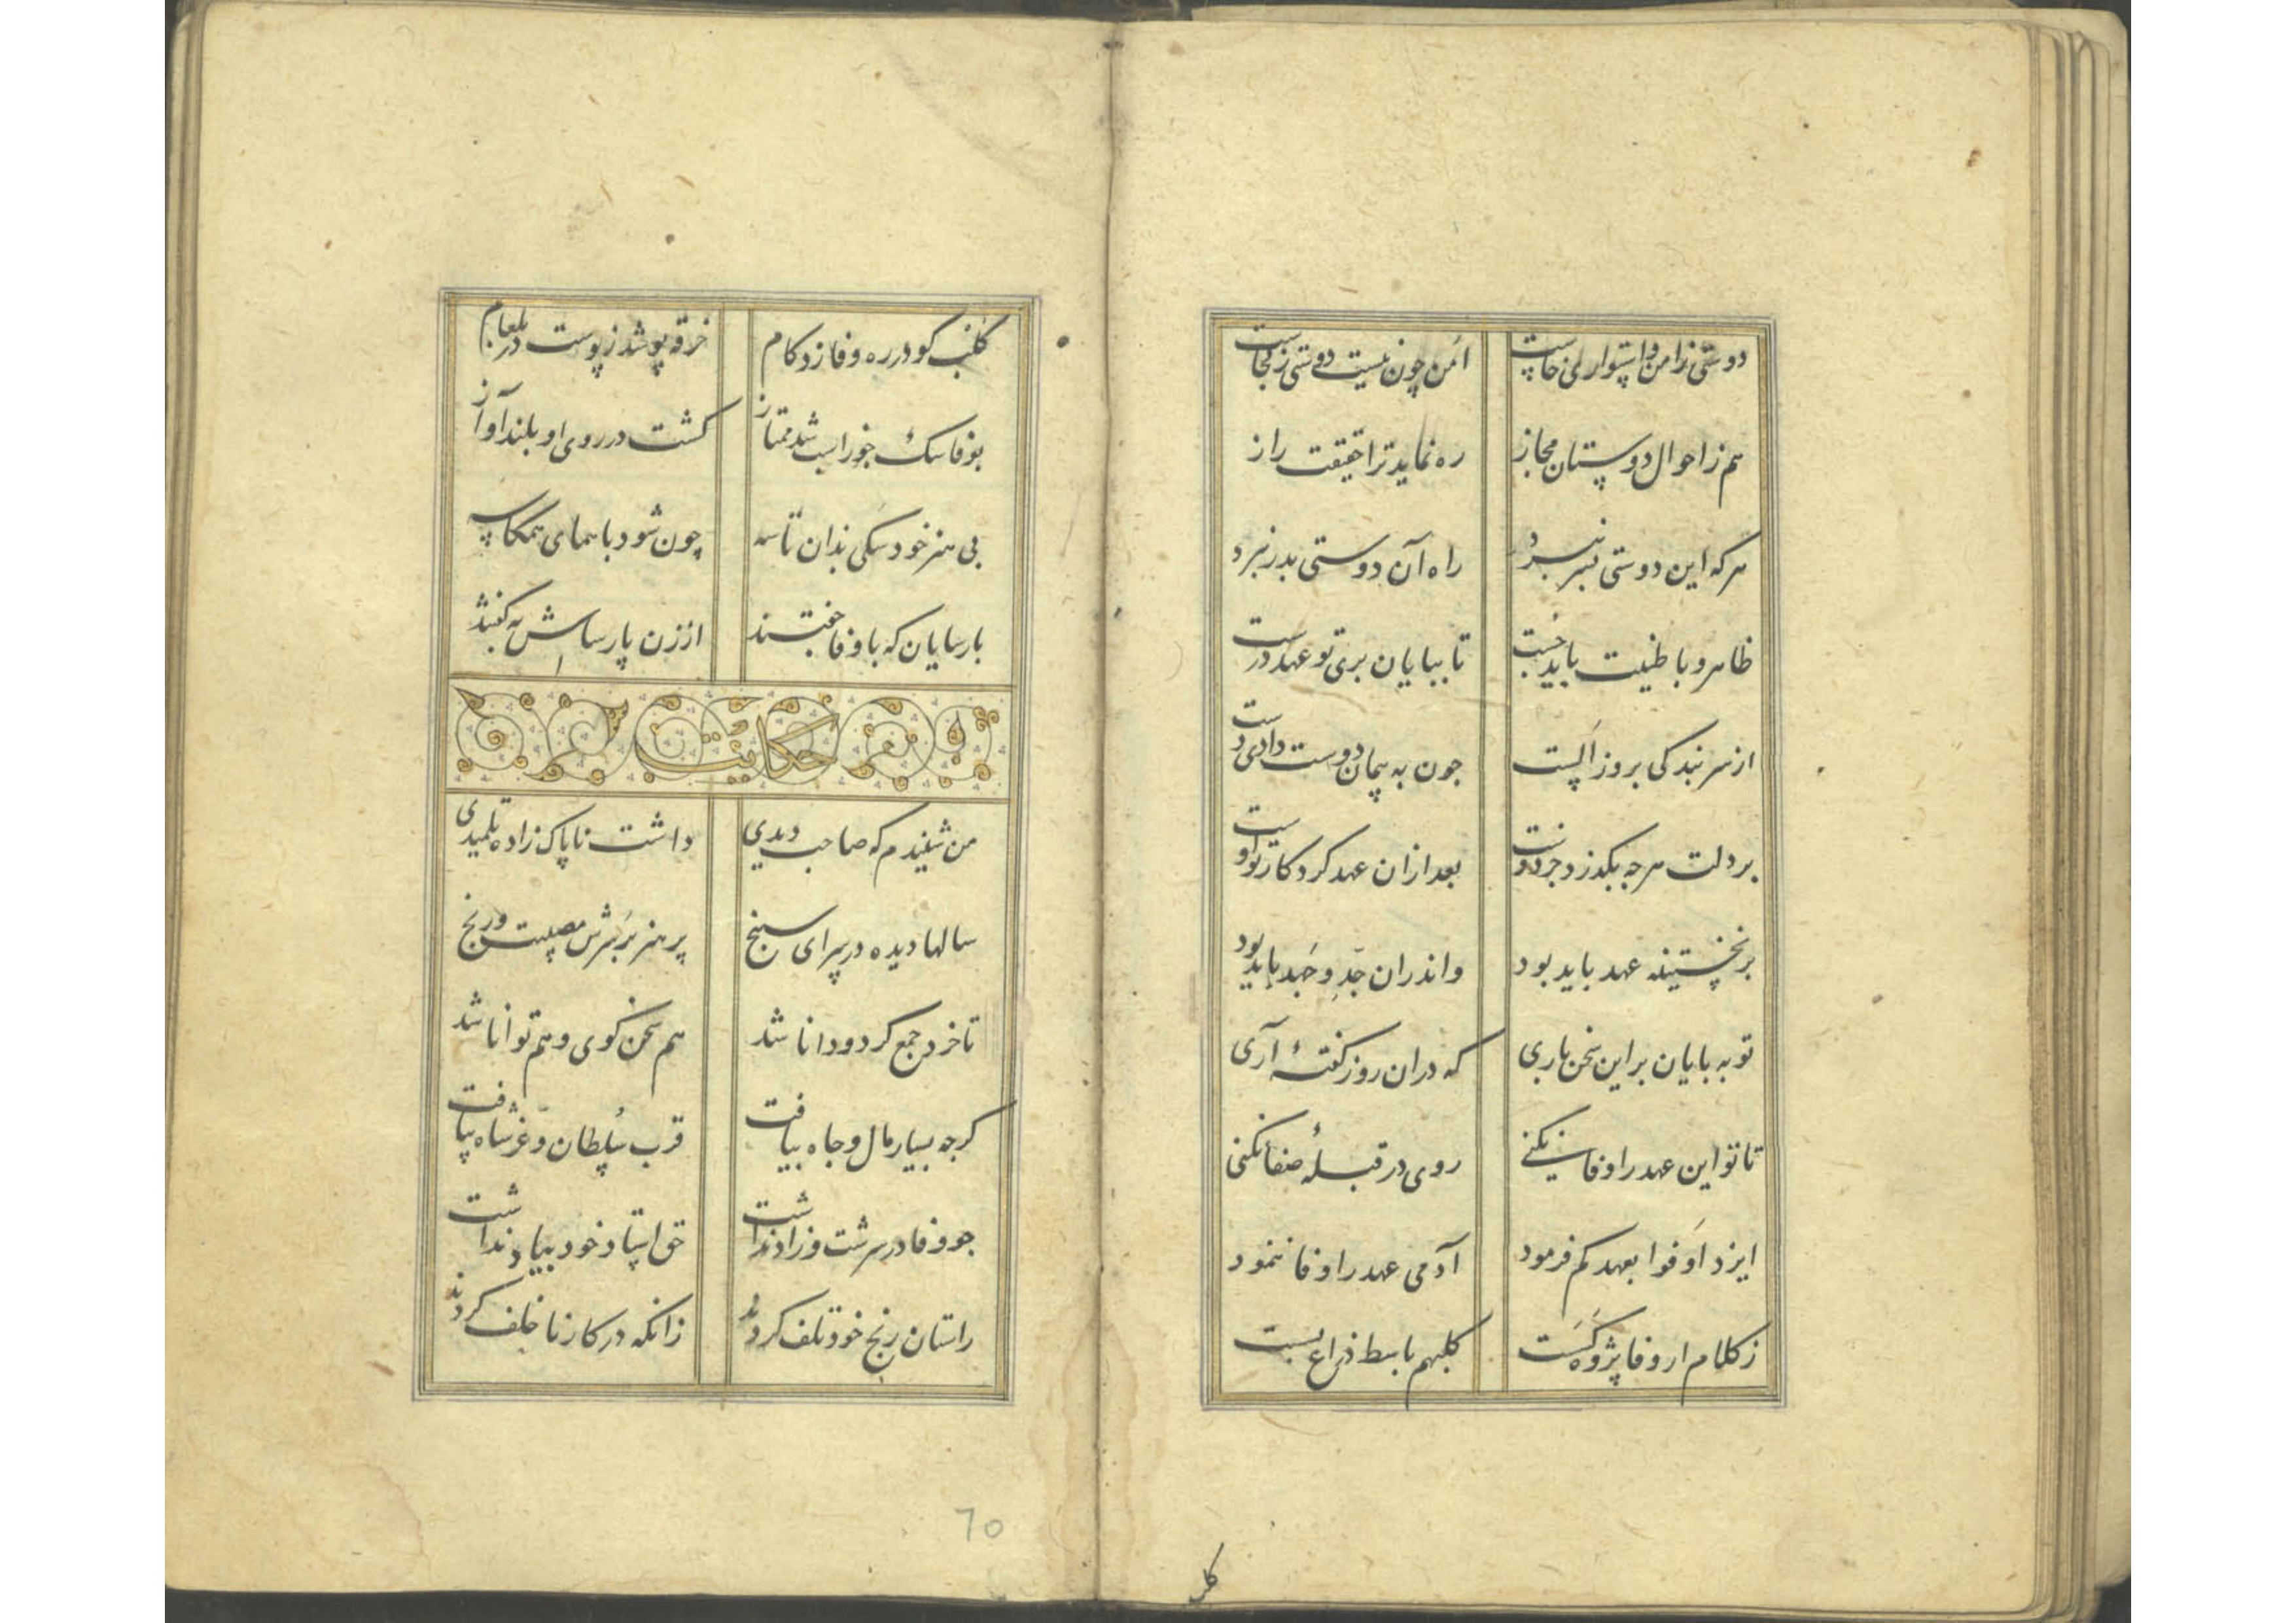 دوستی را امن و استواری خاست امن چون نیست دوستی ز کجاست
هم ز احوال دوستان مجاز ره نماید ترا حقیقت راز
هر که این دوستی بسر نبرد راه آن دوستی بدر نبرد
ظاهر و باطنیت باید جست تا بپایان بری تو عهد درست
از سر بندگی بروز الست جون به پیمان دوست دادی دست
بر دلت هرجه بگذرد جز دوست بعد ازان عهد کرد کار تو اوست
بر نخستینه عهد باید بود واندران جد و جهد باید بود
تو به بایان بر این سخن باری که دران روز گفتهٔ آری
تا تو این عهد را وفا نکنی روی در قبلهٔ صفا نکنی
ایزد اوفوا بعهدکم فرمود آدمی عهد را وفا ننمود
ز کلام ار وفا پژوه کست کلبهم باسط ذراع بست
کلب
کلب کو در ره وفا زد کام خرقه پوشد ز پوست در بلعام
بوفا سک جوراست شد ممتاز کشت در روی او بلند آواز
بی هنر خود سکی بدان تاسه چون شود با همای همکاسه
بارسایان که با وفا خفتند از زن پارساش به گفتند
حکایت
من شنیدم که صاحب دیدی داشت ناپاک زاده تلمیدی
سالها دیده در سرای سپنج پر هنر بر سرش مصیبت و رنج
تا خرد جمع کرد و دانا شد هم سخن کوی و هم توانا شد
کرجه بسیار مال و جاه بیافت قرب سلطان و عز شاه بیافت
جو وفا در سرشت و زاد نداشت حق استاد خود بیاد نداشت
راستان رنج خود تلف کردند زانکه در کار ناخلف کردند
70